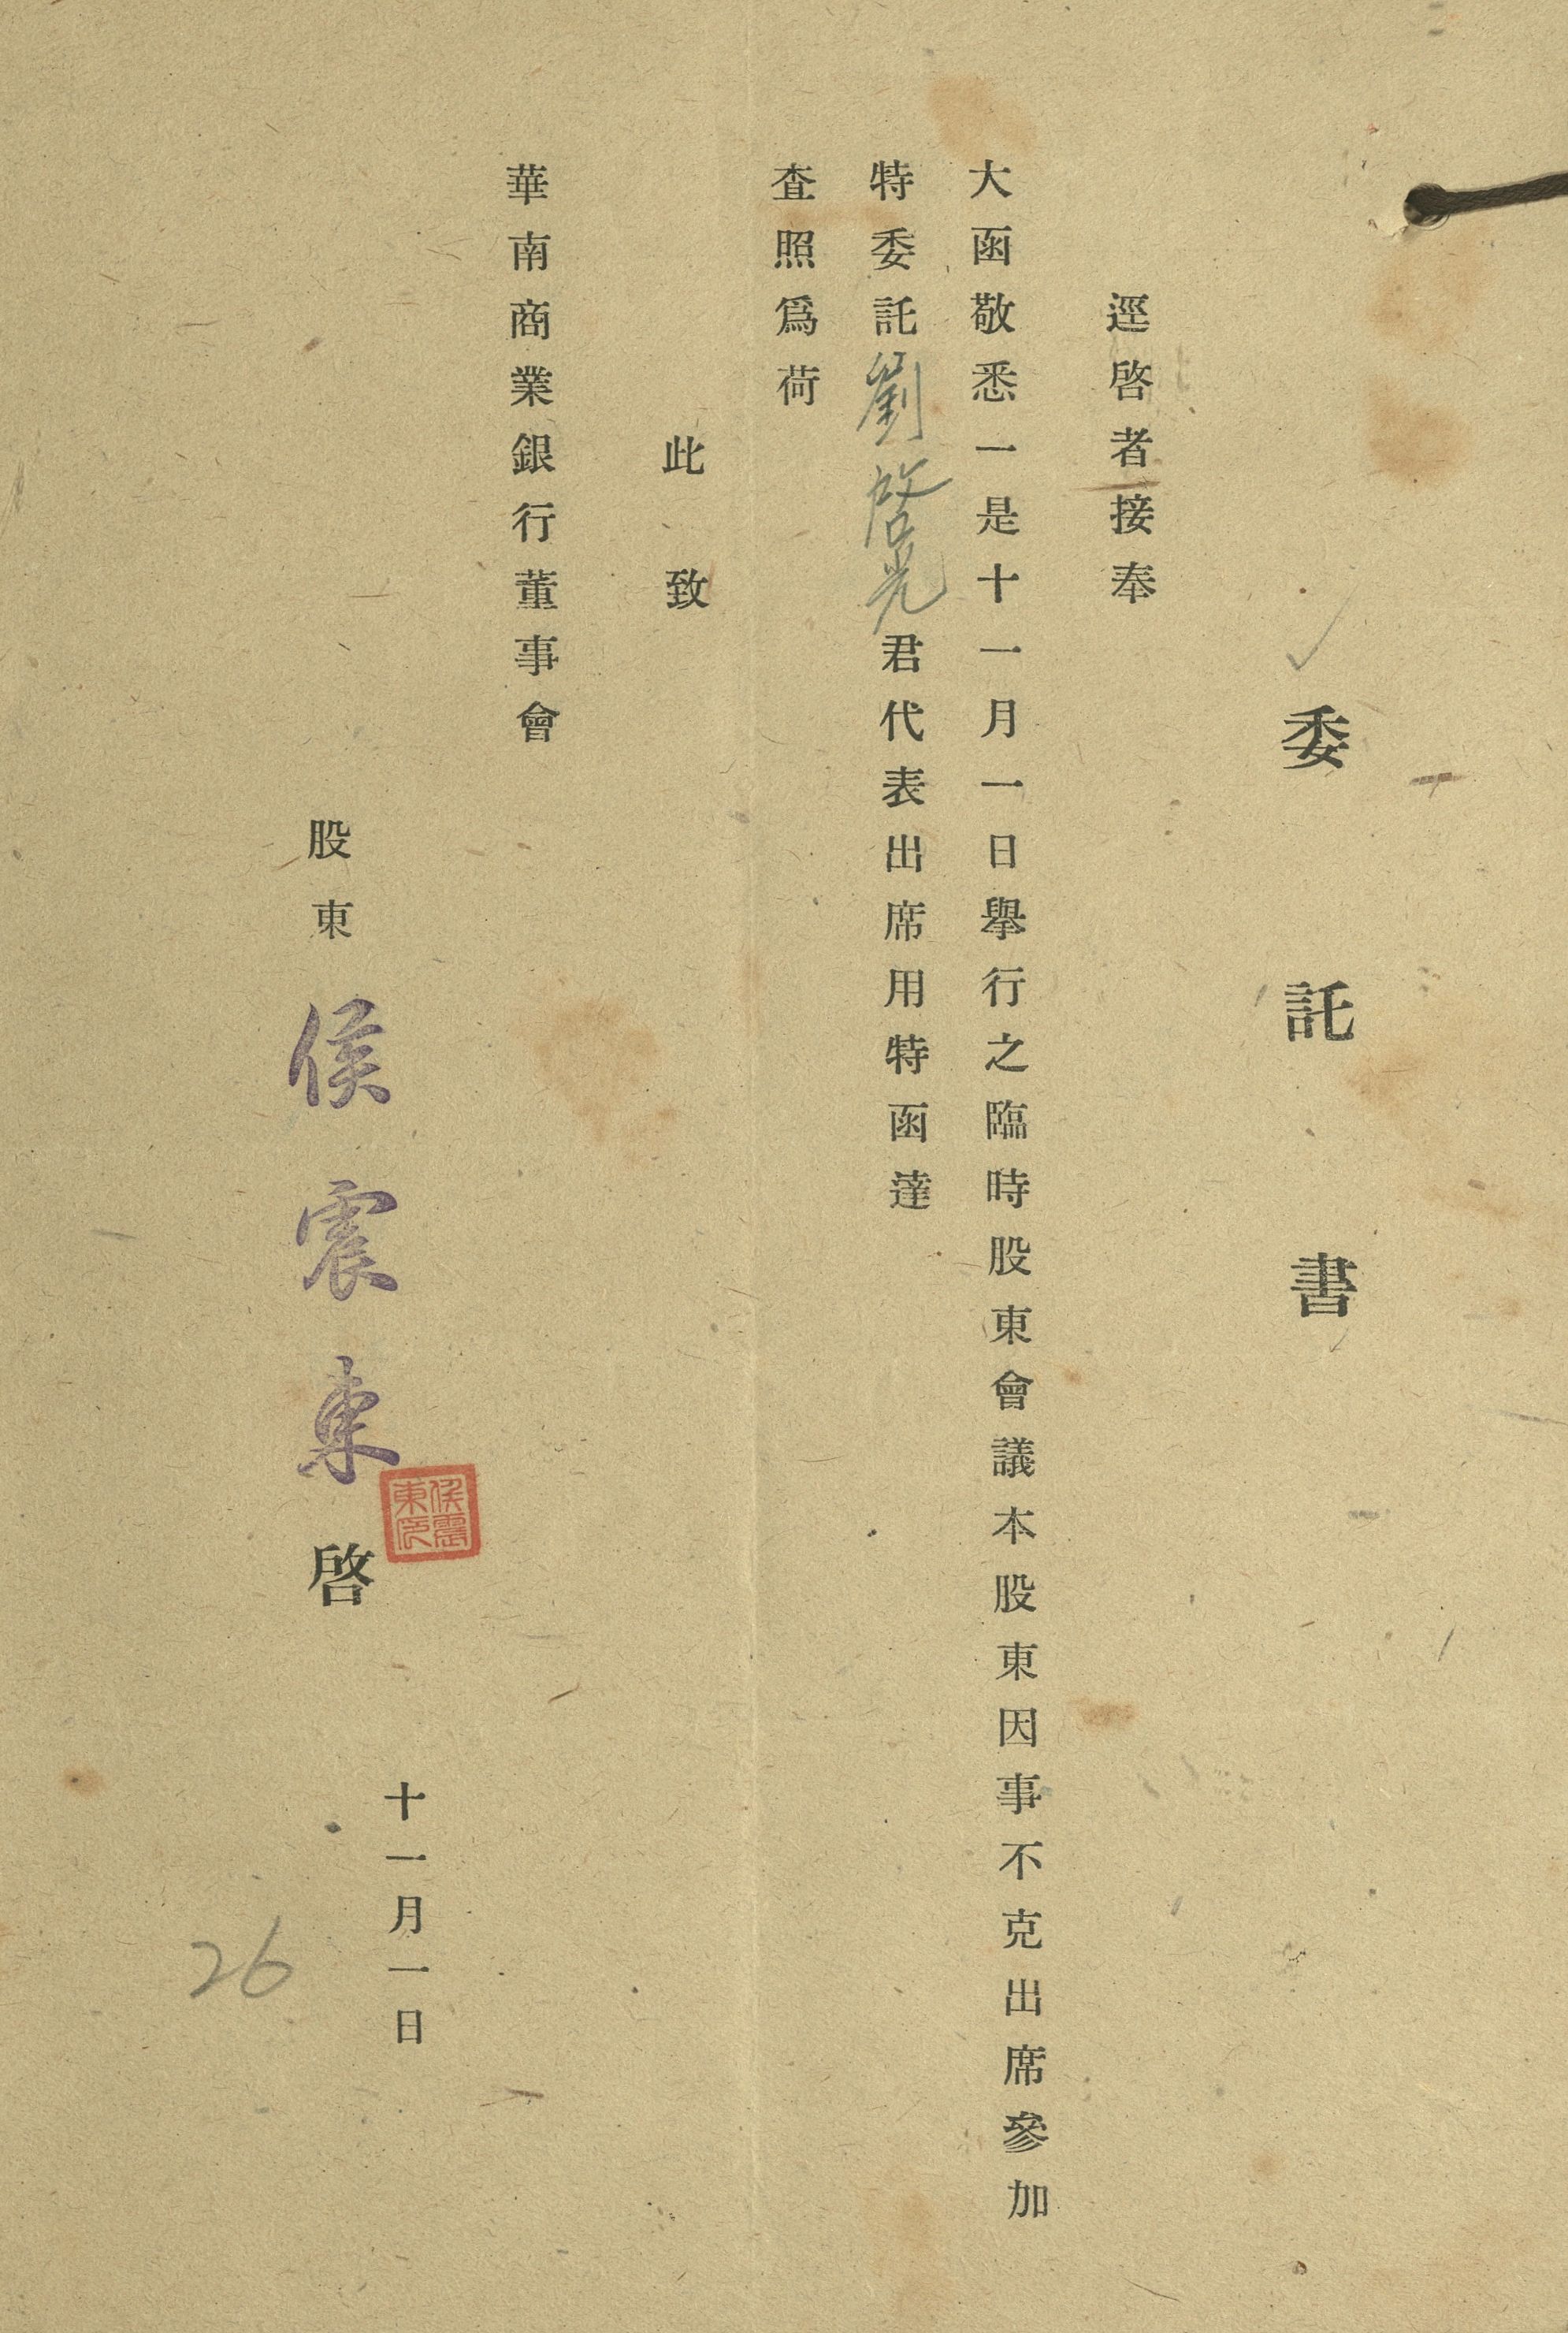 委託書
逕啓者接奉
大函敬悉一是十一月一日舉行之臨時股東會議本股東因事不克出席參加
特委託劉啓光君代表出席用特函達
查照爲荷
此致
華南商業銀行董事會
股東 侯震東 啓
侯震東印
十一月一日
26